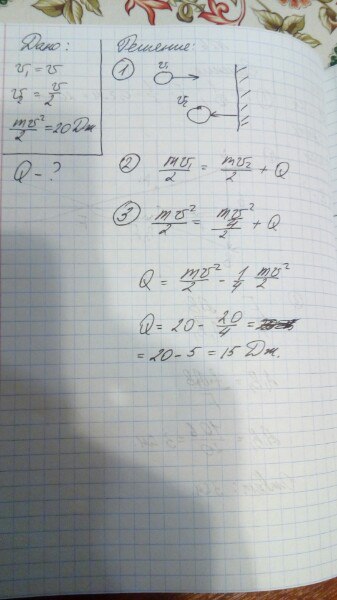 Дано:
v₁ = v
v₂ = v/2
mv²/2 = 20 Дж
Q - ?
Решение:
① v₁
v₂
② mv/2 = mv₂/2 + Q
③ mv²/2 = m v²/4 /2 + Q
Q = mv²/2 - 1/4 mv²/2
Q = 20 - 20/4 =
= 20 - 5 = 15 Дж.